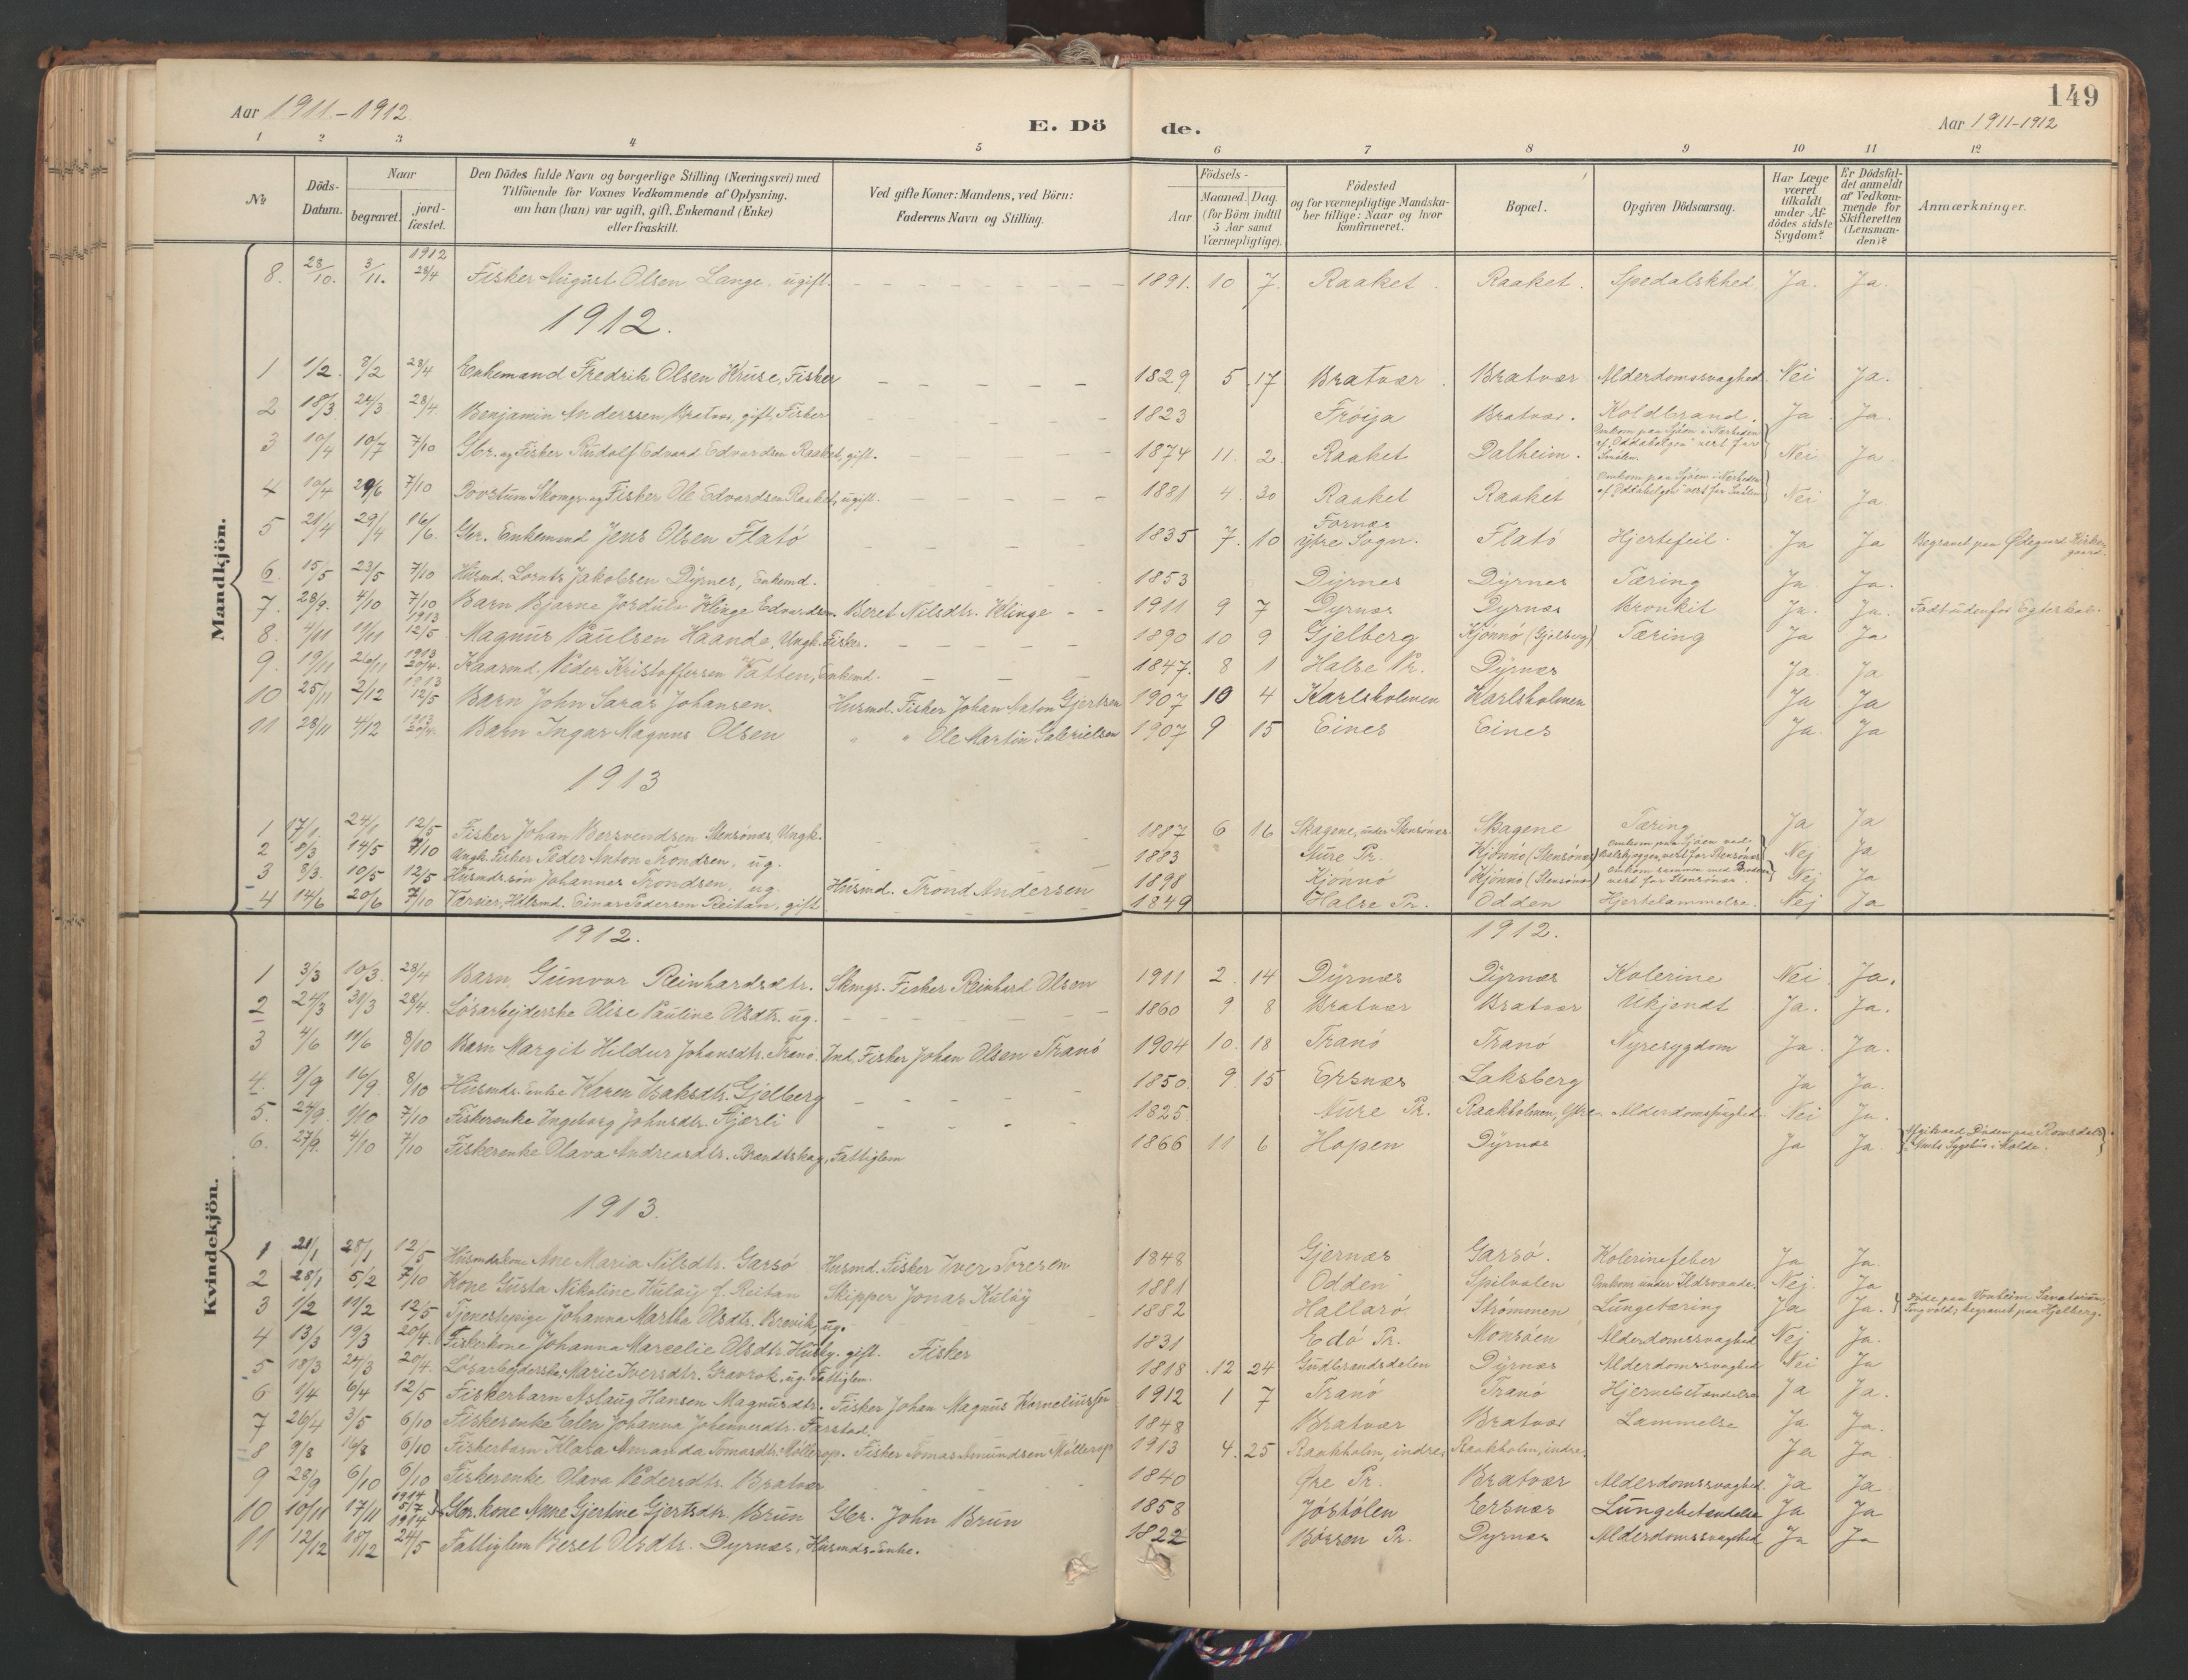 149
Aar 1911-1912
E. Dö de.
Aar 1911-1912
1 2 3 4 5 6 7 8 9 10 11 12
№
Döds-Datum.
Naar
begravet.
jord-fæstet.
Den Dödes fulde Navn og borgerlige Stilling (Næringsvei) med
Tilföiende for Voxnes Vedkommende af Oplysning,
om han (hun) var ugift, gift, Enkemand (Enke)
eller fraskilt.
Ved gifte Koner: Mandens, ved Börn:
Faderens Navn og Stilling.
Födsels-
Aar
Maaned. Dag.
(for Börn indtil
5 Aar samt
Værnepligtige).
Födested
og for værnepligtige Mandska-
ber tillige: Naar og hvor
konfirmeret.
Bopæl.
Opgiven Dödsaarsag.
Har Læge
været
tilkaldt
under Af-
dödes sidste
Sygdom?
Er Dödsfal-
det anmeldt
af Vedkom-
mende for
Skifteretten
(Lensman-
den)?
Anmærkninger.
Mandkjön.
1912
8. 28/10. 3/11. 28/4 Fisker August Olsen Lange. ugift. 1891. 10 7. Raaket. Raaket. Spedalskhed Ja. Ja.
1912.
1 1/2. 8/2 28/4 Enkemand Fredrik Olsen Kruse, Fisker 1829 5 17 Bratvær. Bratvær. Alderdomssvaghed. Nei Ja.
2 18/3 24/3 28/4. Benjamin Anderssen, Bratvær, gift. Fisker 1823 Fröija Bratvær. Koldbrand. Ja Ja.
3 10/4 10/7 7/10 Gbr. og Fisker Rudolf Edvard Edvardsen Raaket, gift. 1874 11. 2. Raaket Dalheim. Omkom paa Sjöen i Nærheden af "Oddabolgen" vest for Smölen. Nei Ja
4 10/4 29/6 7/10 Skomgr. og Fisker Ole Edvardsen Raaket, ugift. 1881 4. 30 Raaket Raaket Omkom paa Sjöen i Nærheden af "Oddabolgen" vest for Smölen Nei Ja
5 21/4 29/4 16/6. Gbr. Enkemand Jens Olsen Flatö 1835 7. 10 Fornæs ytre Sogn. Flatö Hjertefeil. Ja Ja Begravet paa Ødegaard Kirkegaard.
6. 15/5 23/5 7/10 Husmd. Lornts Jakobsen Dyrnes, Enkemd. 1853 Dyrnes Dyrnes Tæring Ja Ja.
7. 28/9. 4/10 7/10 Barn Bjarne Jordulv Klinge Edvardsen. Beret Nilsdtr. Klinge 1911 9 7 Dyrnæs Dyrnæs Bronkit Ja. Ja. Födt udenfor Egteskab.
8. 4/11 11/11 1913 12/5 Magnus Paulsen Haande, Ungk. Fisker. 1890 10 9 Gjelberg Kjönnö (Gjelberg) Tæring Ja Ja
9. 19/11 26/11 1913 20/4. Kaarmd. Peder Kristoffersen Vatten, Enkemd. 1847. 8 1 Halse Pr. Dyrnæs Ja. Ja
10 25/11 2/12 1913 12/5 Barn John Sarar Johansen. Husmd. Fisker Johan Anton Gjertsen 1907 10 4 Karlsholmen Karlsholmen Ja Ja
11 28/11 4/12 1913 20/4. Barn Ingar Magnus Olsen " " Ole Martin Gabrielsen 1907 9 15 Eines Eines Ja. Ja
1913
1 17/1. 24/1 12/5 Fisker Johan Bersvendsen Stensönæs, Ungk. 1887 6 16 Skagene, under Stensönæs. Skagene Tæring Ja Ja
2 8/3 14/5 7/10 Ungk. Fisker Peder Anton Trondsen, ug. 1883 Aure Pr. Kjönnö (Stensönæs) Omkom paa Sjöen ved vest for Stensönæs Nej Ja
3 8/3. 10/5 12/5 Husmds. sön Johannes Trondsen, ug. Husmd. Trond Andersen 1898 Kjönnö Kjönnö (Stensönæs) Omkom sammen med Broderen vest for Stensönæs. Nej Ja
4 14/6 20/6 7/10 Husmd. Einar Pedersen Reitan, gift 1849 Halse Pr. Odden Hjertelammelse. Nej Ja
Kvindekjön.
1912. 1912.
1 3/3 10/3. 28/4 Barn, Gunvor Reinhardsdtr. Skmgr. Fisker Reinhard Olsen 1911 2. 14 Dyrnæs Dyrnæs Kolerine Nei Ja.
2 24/3 31/3 28/4. Lösarbejderske Olise Pauline Olsdtr. ug. 1860 9. 8 Bratvær Bratvær Ukjendt Ja. Ja.
3 4/6 11/6 8/10 Barn Margit Hildur Johansdtr. Tranö. Ind. Fisker Johan Olsen Tranö 1904 10. 18 Tranö Tranö Nyresygdom Ja. Ja.
4. 9/9 16/9 8/10 Husmds. Enke Karen Isaksdtr. Gjelberg 1850. 9. 15 Ersnæs Laksberg Ja Ja.
5. 24/9. 1/10 7/10 Fiskerenke Ingeborg Johnsdtr. Fjærli 1825. Aure Pr. Raakholmen, Ytre. Alderdomssvaghed. Nei Ja.
6. 27/9. 4/10 7/10 Fiskerenke Olava Andreasdtr. Brandtskag, Fattiglem 1866 11 6 Hopen Dyrnæs Ja Ja Döden paa Romsdals Amts Sygehus i Molde.
1913.
1 21/1 28/1 12/5 Husmdskone Ane Maria Nilsdtr. Garsö Husmd. Fisker Iver Toresen 1848 Gjernæs Garsö. Kolerinefeber Ja Ja.
2 28/1 5/2 7/10 Kone Gusta Nikoline Kulöy f. Reitan Skipper Jonas Kulöy 1881 Odden Spilvolen Omkom under Ildsvaade. Nej. Ja
3 1/2 11/2 12/5 Tjenestepige Johanna Martha Olsdtr. Brevik, ug. 1882 Hallarö Strömmen Lungetæring Ja Ja. Döde paa Vonheim Sanatorium, Tingvold; begravet paa Hjelberg.
4 13/3 19/3 20/4. Fiskerkone Johanna Marcelie Olsdtr. Husby. gift. Fisker 1831 Edö Pr. Monsöen Alderdomssvaghed Nej Ja.
5 18/3 27/3 20/4. Lösarbejderske Marie Iversdtr. Gravrok, ug. Fattiglem. 1818 12 24 Gudbrandsdalen Dyrnæs Alderdomssvaghed Nei Ja
6 1/4 6/4 12/5 Fiskerbarn Aslaug Hansen Magnusdtr. Fisker Johan Magnus Korneliussen 1912 1 7 Tranö Tranö Hjernebetændelse Ja Ja.
7 26/4 3/5 6/10 Fiskerenke Elen Johanna Johannesdtr. Farstad. 1848 Bratvær Bratvær Lammelse Ja Ja.
8 9/8 16/8 6/10 Fiskerbarn Klara Amanda Tomasdtr. Möllerop. Fisker Tomas Amundsen Möllerop 1913 4. 25 Raakholm, indre. Raakholm, indre. Ja Ja
9 28/9 6/10 6/10 Fiskerenke Olava Pedersdtr. Bratvær 1840 Øre Pr. Bratvær Alderdomssvaghed. Ja Ja
10 10/11 17/11 1914 5/7 Gbr. kone Anne Gjertine Gjertsdtr. Brun Gbr. John Brun 1858 Jöstölen Ersnæs Lungebetændelse Ja Ja
11 12/12 18/12 1914 24/5 Fattiglem Beret Olsdtr. Dyrnæs, Husmds. Enke. 1822 Börsen Pr. Dyrnæs Alderdomssvaghed Ja Ja